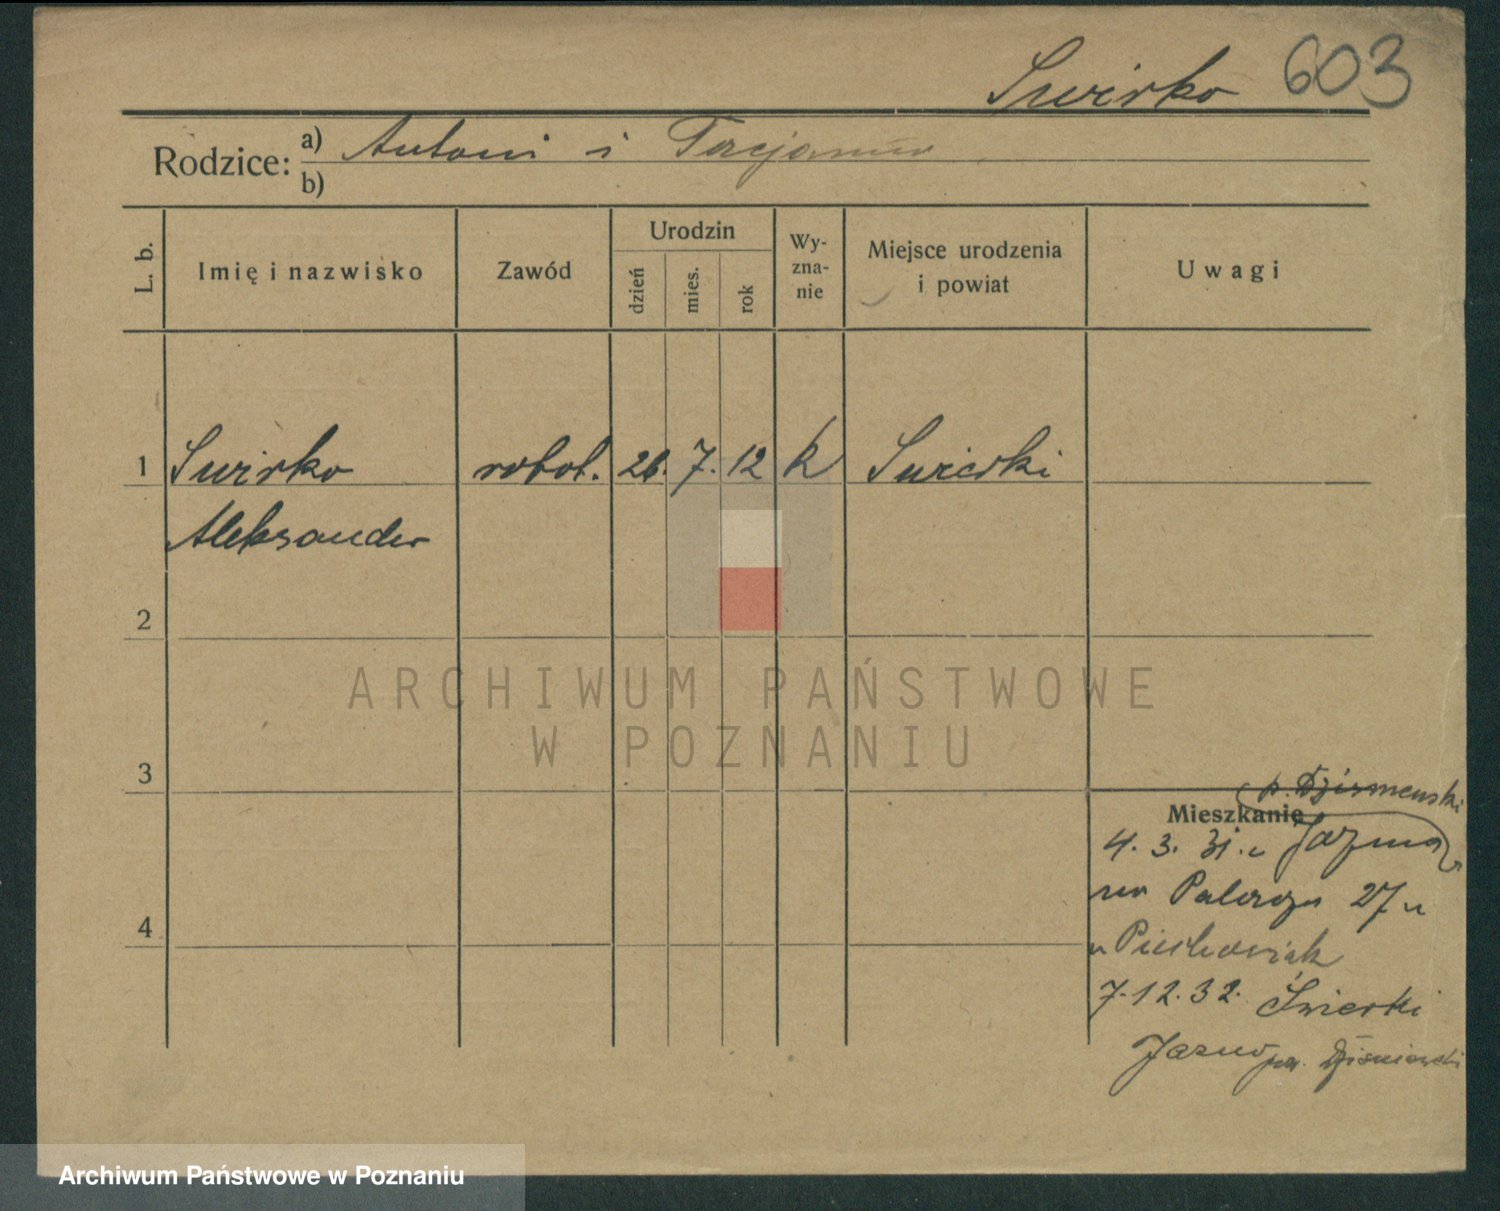 Swirko 603
Rodzice: a) Antoni i Tacjanna
b)
L. b.
Imię i nazwisko
Zawód
Urodzin
dzień
mies.
rok
Wy-
zna-
nie
Miejsce urodzenia
i powiat
Uwagi
1 Swirko robot. 26. 7. 12 k Swierki
Aleksander
2
ARCHIWUM PAŃSTWOWE
W POZNANIU
3
p.
Mieszkanie
4. 3. 31. z Jazna
na 27 u
4
u Piechowiak
7.12.32. Świerki
Jazno
Archiwum Państwowe w Poznaniu